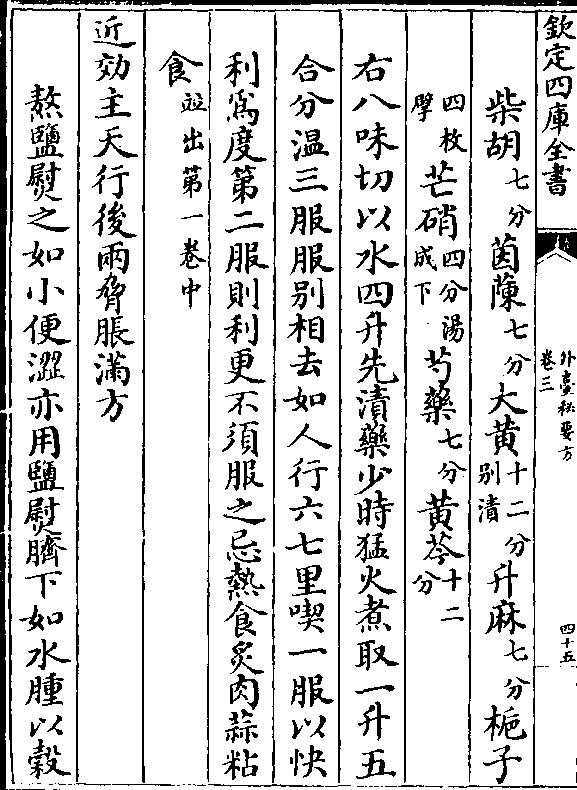 欽定四庫全書
外臺秘要方
卷三
四十五
柴胡七分茵蔯七分大黄十二分别漬升麻七分梔子
四枚擘芒硝四分湯成下芍藥七分黄芩十二分
右八味切以水四升先漬藥少時猛火煮取一升五
合分温三服服别相去如人行六七里喫一服以快
利為度第二服則利更不須服之忌熱食炙肉蒜粘
食並出第一卷中
近効主天行後兩脅脹滿方
熬鹽熨之如小便澀亦用鹽熨臍下如水腫以穀